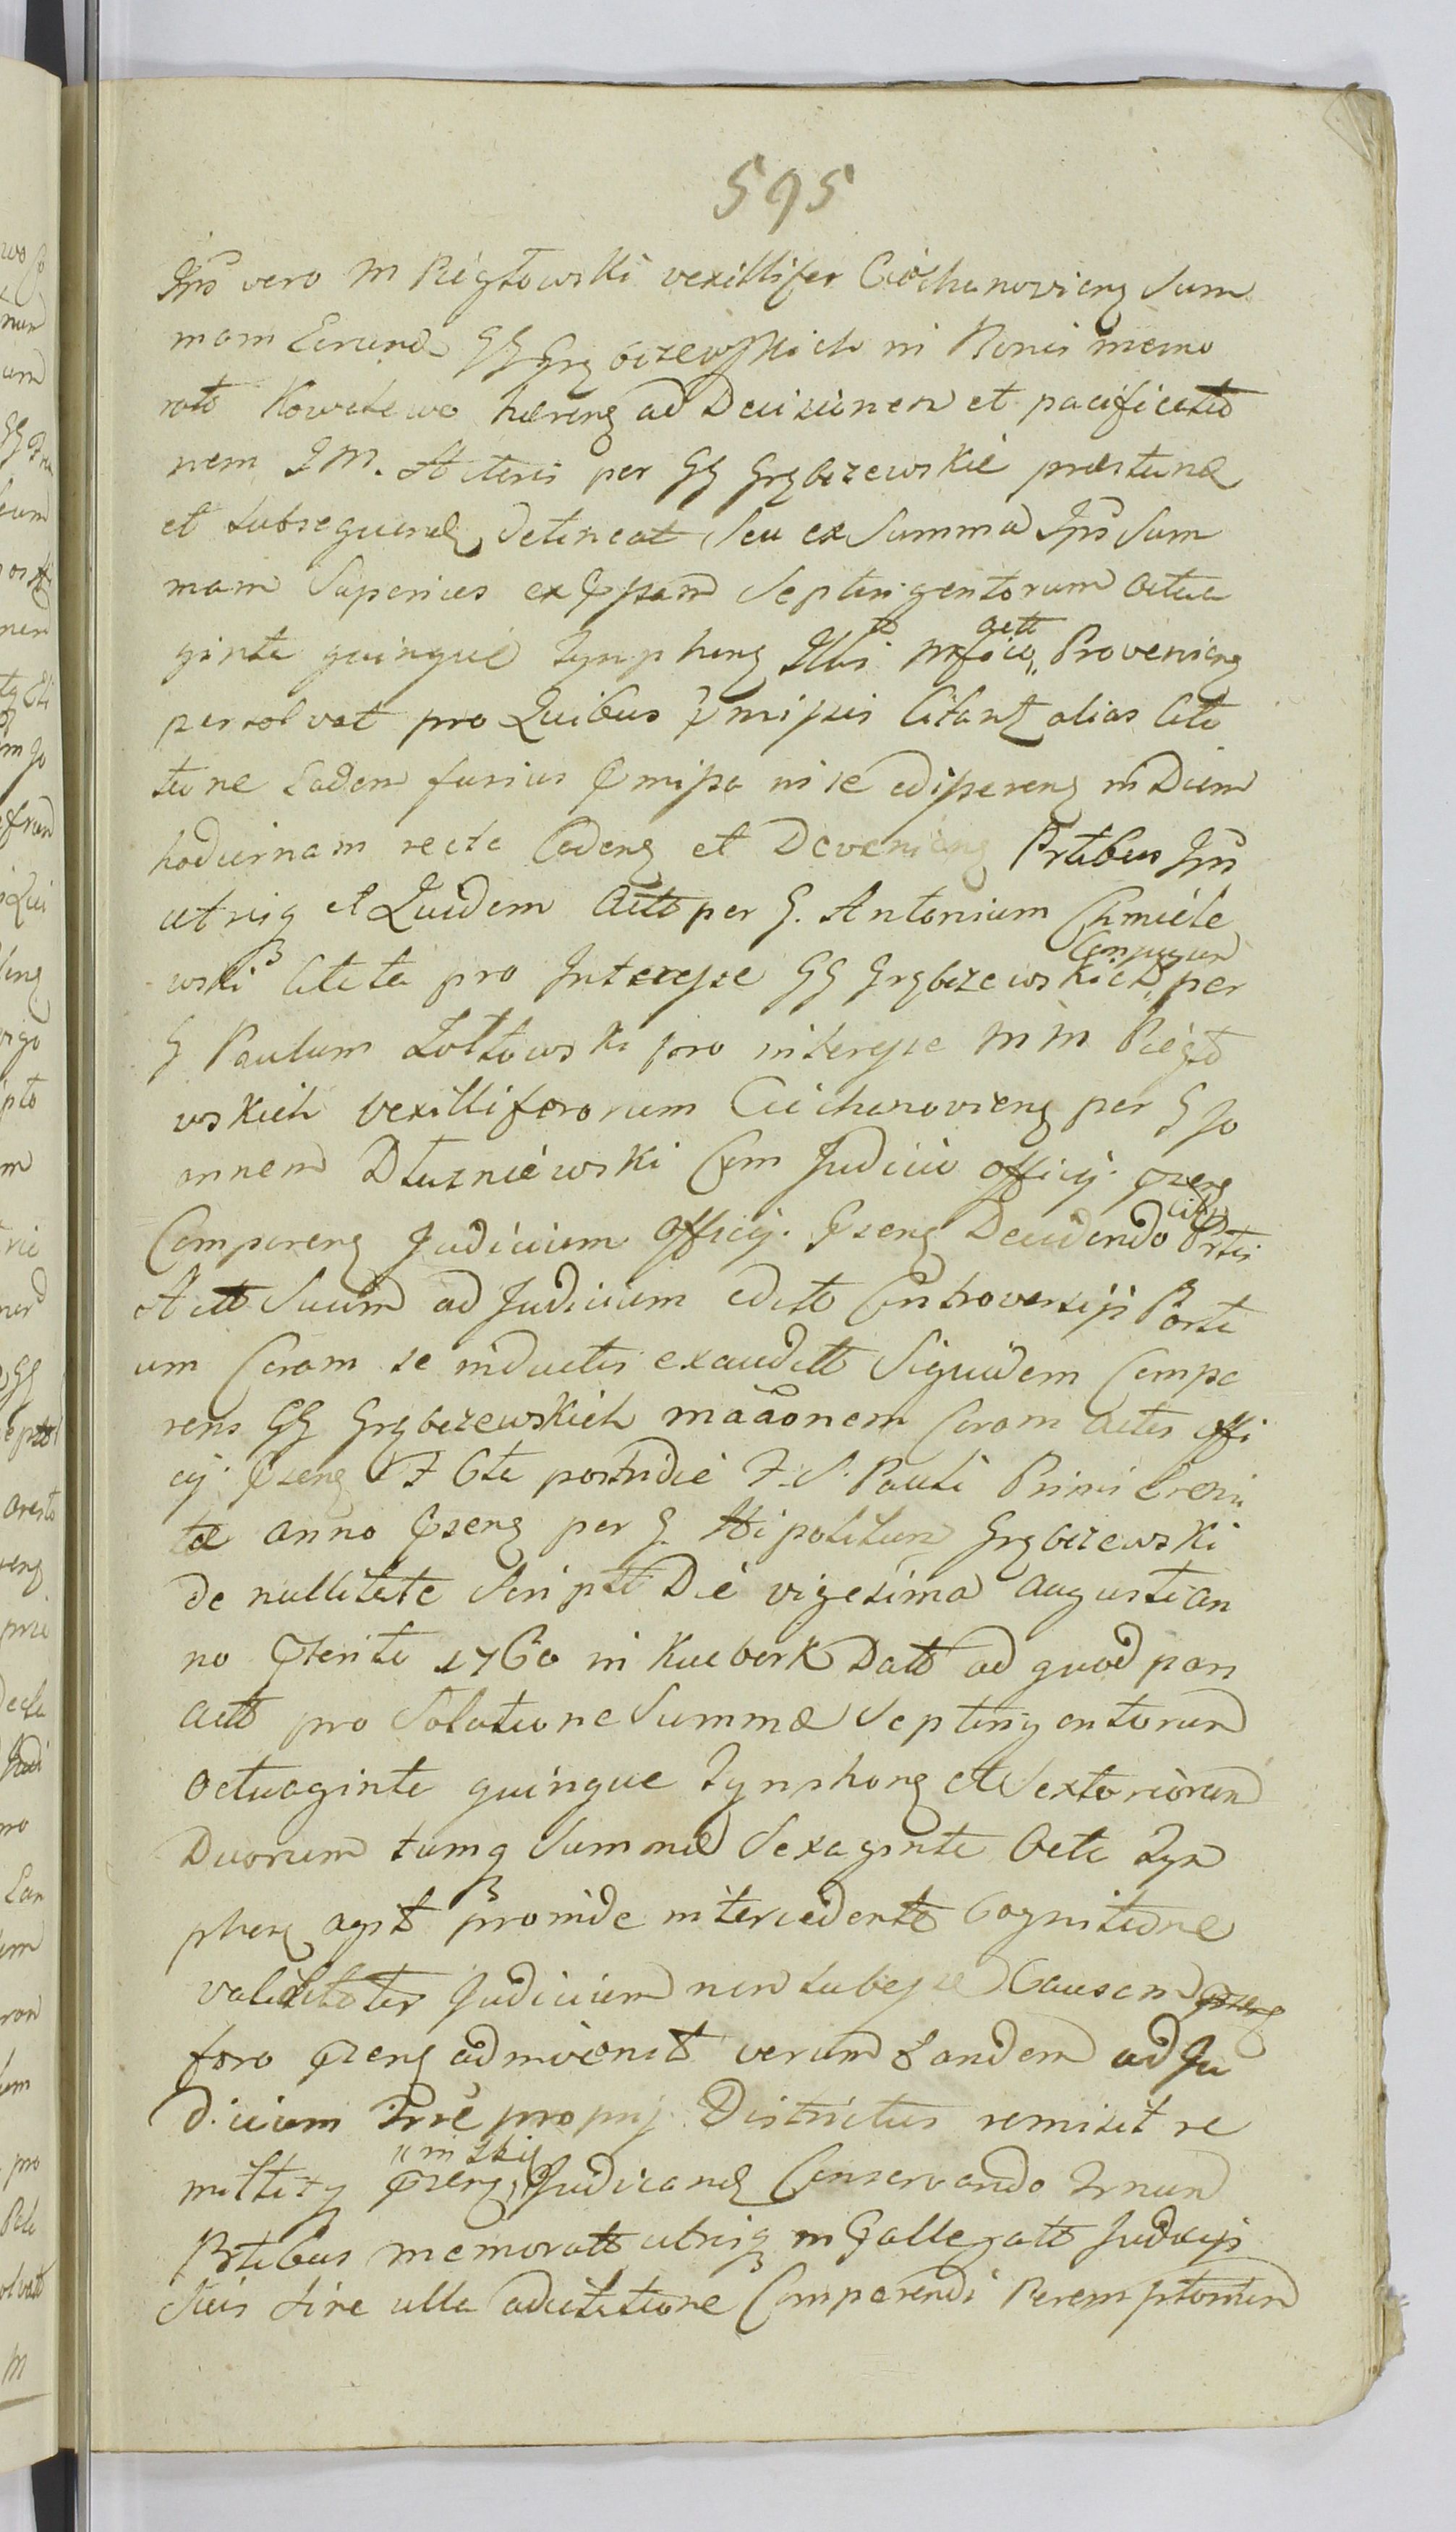 595
Ips vero M Piegłowski vexillifer Ciechanoviens Sum
mam Earund GG Grzybczewskich in Bonis memo
rats Kowalewo haerens ad Decisionem et pacificatio
nem I M. Actoris per GG Grzybczewskie praestand
et subsequend detineat seu ex Summa Ips Sum
mam Superius expssam Septingentorum octua
ginta quinque Tynphons Provenien
persolvat pro Quibus pmissis Citant alias Cita
tione Eadem fusius pmissa in se adipserens in Diem
hodiernam recte Cadens et Devenien Ptibus Ips
utrisq et Quidem Acto per G. Antonium Chmiele
wski Citata pro Interesse GG Grzybczewskich Compargen per
G Paulum Zołtowski pro interesse M M Piegło
wskich vexilliferorum Ciechanoviens per G Jo
annem Dłużniewski Cum Judicio Officij pzens
Comparens Judicium Officij pzens Decidendo Ptis
Acto Suum ad Judicium edito Controversijs Parti
um Coram se inductis exaudito Siquidem Compa
rens GG Grzybczewskich maãonem Coram actis offi
cij pzens F 6ta postridie F. S. Pauli Primi Eremi
tae anno pzens per G. Hipolitum Grzybczewski
de nullitate Script Die vigesima Augusti an
no pterito 1760 in Kucbork Dato ad quod pars
acto pro Solutione Summae Septingentorum
Octuaginta quinque Tynphons et Sextoriorum
Duorum tumq Summae Sexaginta Octo Tyn
phons agit proinde intercedente Cognitione
validitatis Judicium non subesse Causam
foro pzens admvenit verum tandem ad Ju
dicium Trre proprij Districtus remisit re
mittitq pzens Judicand Conservando Trnum
Ptibus memorats utrisq in Gallegato Judicijs
Suis sine ulla adcitatione Comparendi Peremptorium